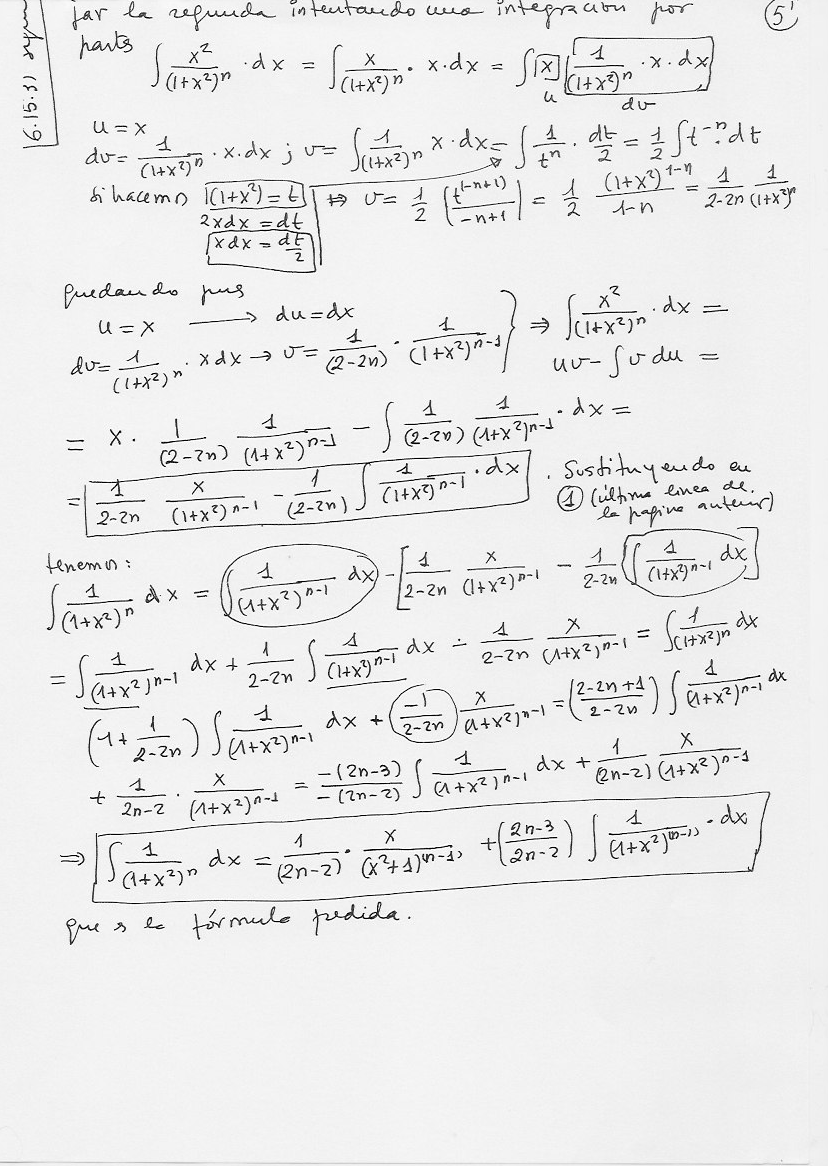 jar la segunda intentando una integración por
5'
6.15.3)
parts
∫ x²/(1+x²)ⁿ · dx = ∫ x/(1+x²)ⁿ · x·dx = ∫ x 1/(1+x²)ⁿ · x·dx
u dv
u = x
dv = 1/(1+x²)ⁿ · x·dx ; v = ∫ 1/(1+x²)ⁿ x·dx = ∫ 1/tⁿ · dt/2 = 1/2 ∫ t⁻ⁿ · dt
si hacemos (1+x²) = t ⇒ v = 1/2 [t^(-n+1)/(-n+1)] = 1/2 (1+x²)^(1-n)/(1-n) = 1/(2-2n) 1/(1+x²)ⁿ
2xdx = dt
xdx = dt/2
quedando pues
u = x → du = dx
dv = 1/(1+x²)ⁿ · xdx → v = 1/(2-2n) · 1/(1+x²)^(n-1) } ⇒ ∫ x²/(1+x²)ⁿ · dx =
uv - ∫ v du =
= x · 1/(2-2n) 1/(1+x²)^(n-1) - ∫ 1/(2-2n) 1/(1+x²)^(n-1) · dx =
= 1/(2-2n) x/(1+x²)^(n-1) - 1/(2-2n) ∫ 1/(1+x²)^(n-1) · dx . Sustituyendo en
① (última linea de
la pagina anterior)
tenemos:
∫ 1/(1+x²)ⁿ dx = ∫ 1/(1+x²)^(n-1) dx - [1/(2-2n) x/(1+x²)^(n-1) - 1/(2-2n) ∫ 1/(1+x²)^(n-1) dx]
= ∫ 1/(1+x²)^(n-1) dx + 1/(2-2n) ∫ 1/(1+x²)^(n-1) dx - 1/(2-2n) x/(1+x²)^(n-1) = ∫ 1/(1+x²)ⁿ dx
(1 + 1/(2-2n)) ∫ 1/(1+x²)^(n-1) dx + (-1/(2-2n)) x/(1+x²)^(n-1) = ((2-2n+1)/(2-2n)) ∫ 1/(1+x²)^(n-1) dx
+ 1/(2n-2) · x/(1+x²)^(n-1) = -(2n-3)/-(2n-2) ∫ 1/(1+x²)^(n-1) dx + 1/(2n-2) x/(1+x²)^(n-1)
⇒ ∫ 1/(1+x²)ⁿ dx = 1/(2n-2) · x/(x²+1)^(n-1) + ((2n-3)/(2n-2)) ∫ 1/(1+x²)^(n-1) · dx
que es la fórmula pedida.